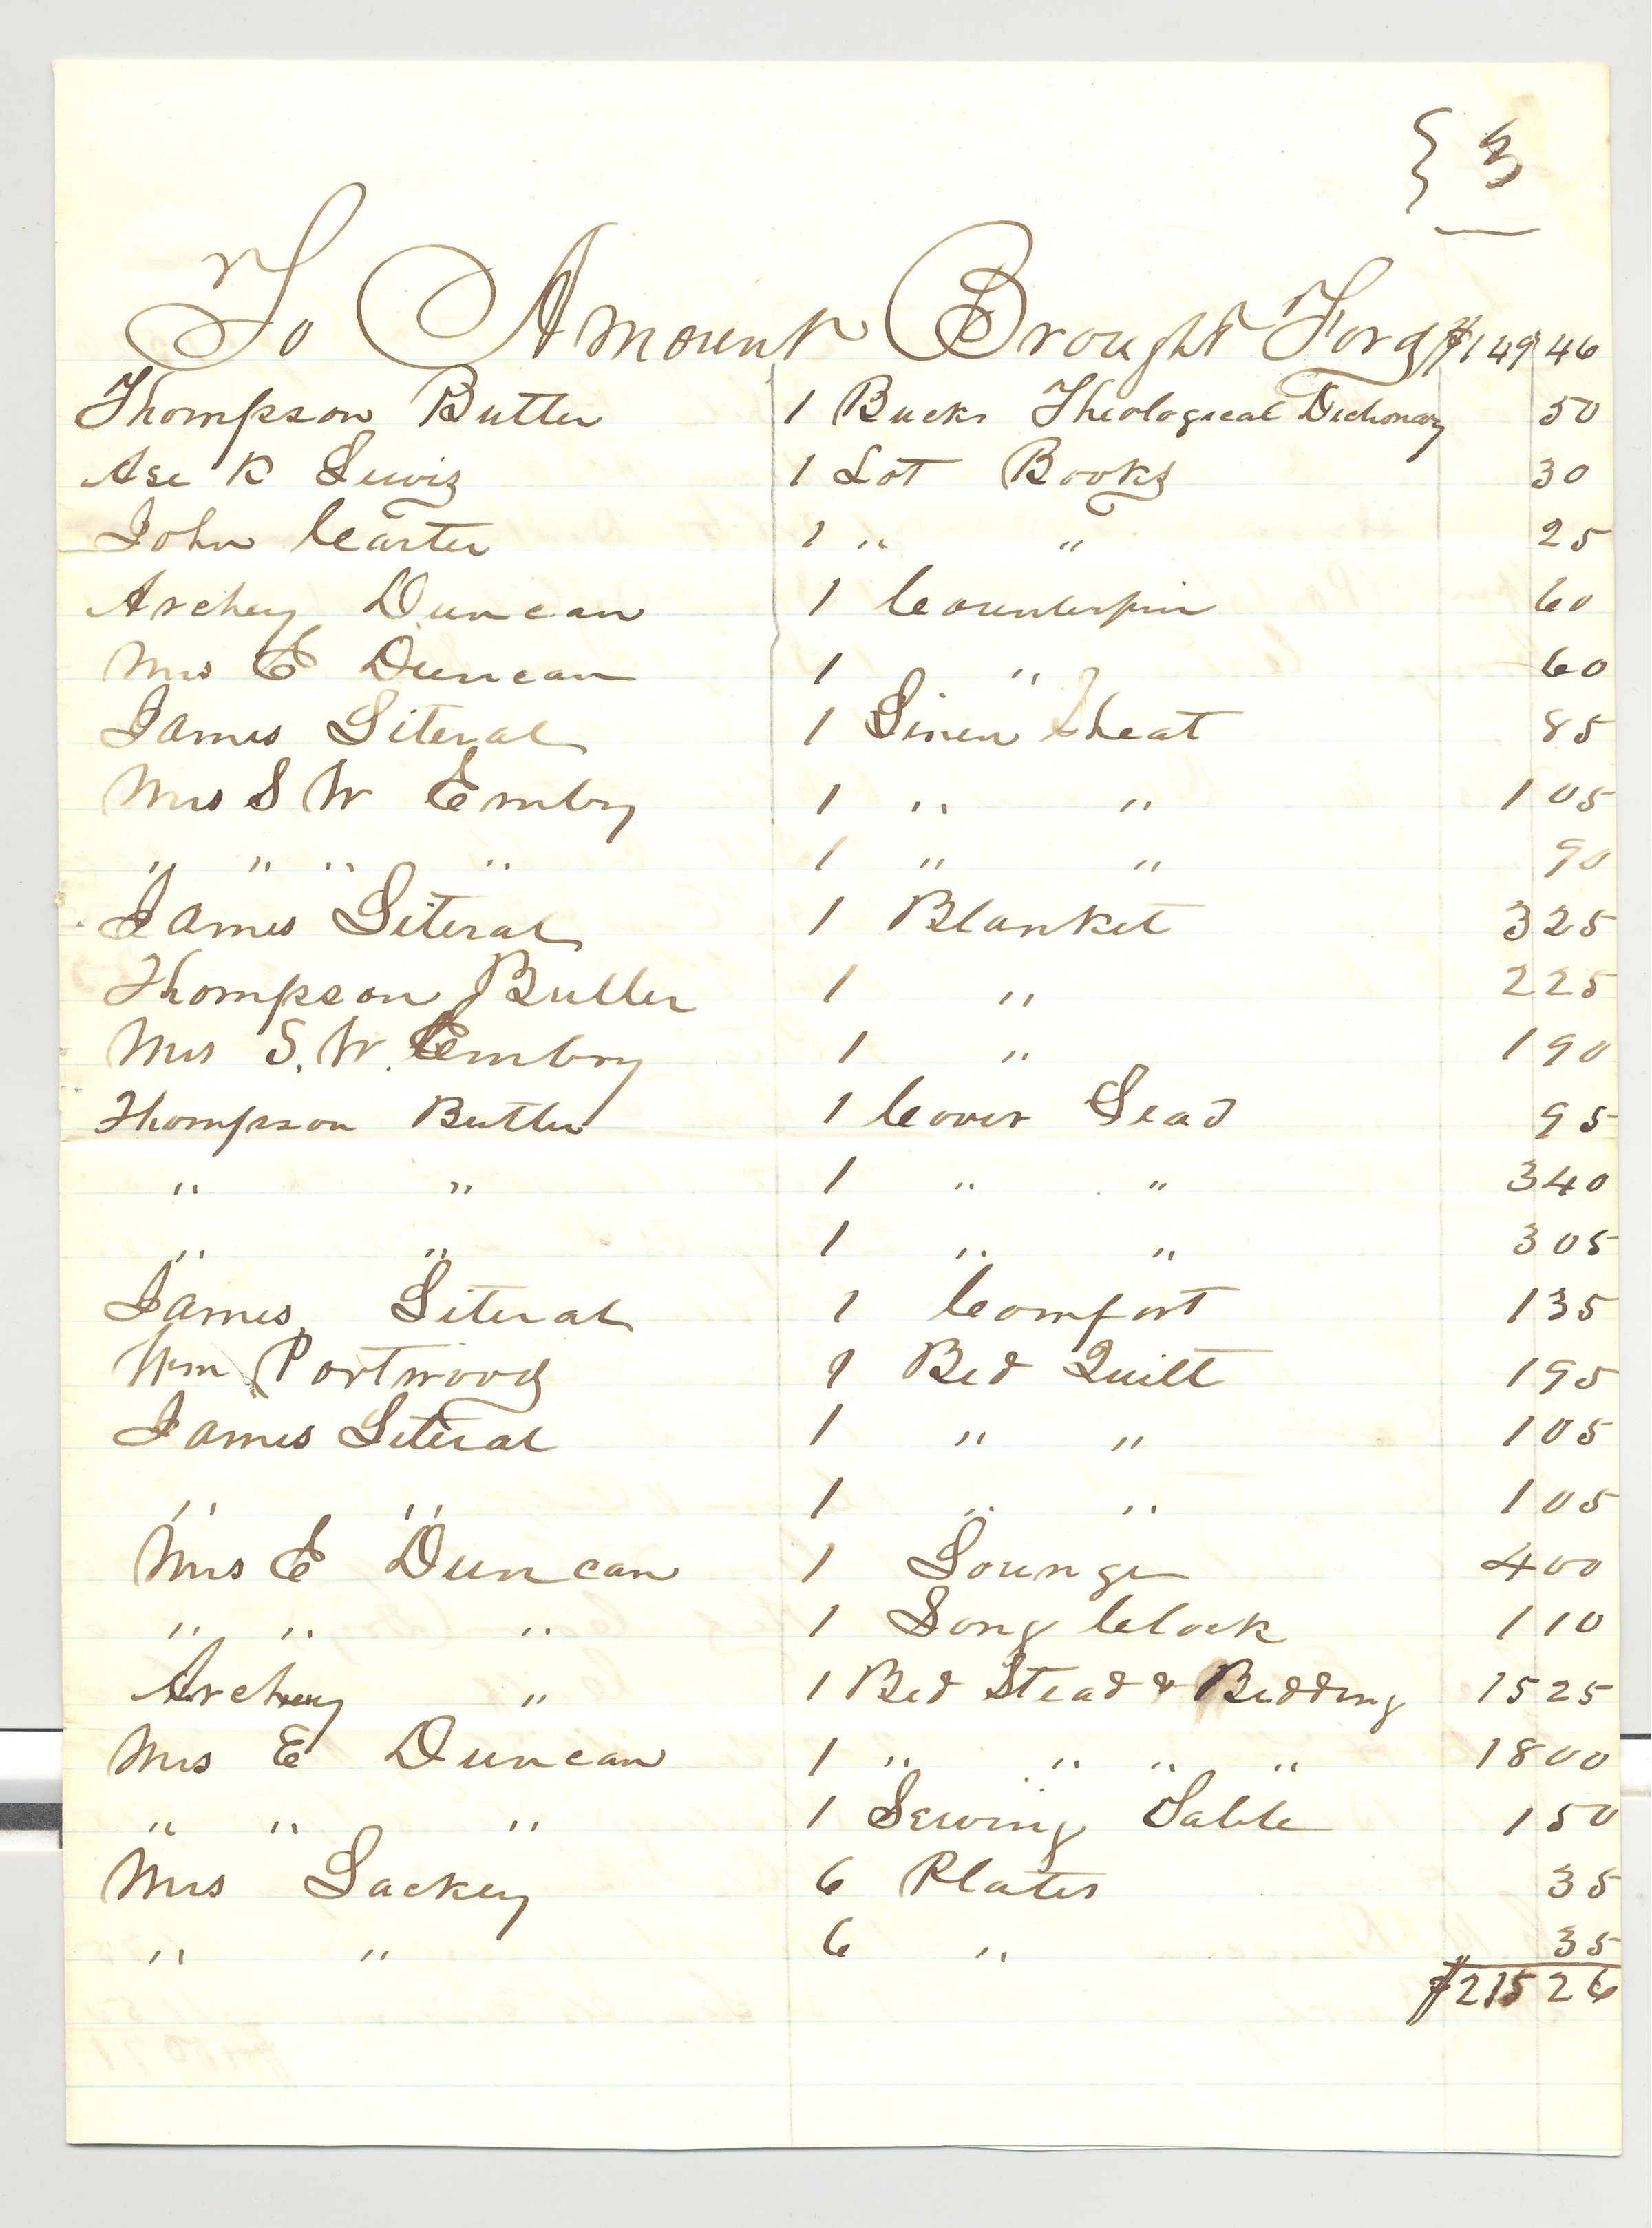 { 3
To Amount Brought Ford $149 46
Thompson Butler 1 Bucks Theological Dictionary 50
Ase K Lewis 1 Lot Books 30
John Carter 1 " " 25
Archey Duncan 1 Counterpin 60
Mrs E Duncan 1 " 60
James Literal 1 Linen Sheat 85
Mrs S W Embry 1 " " 1 05
" " " " 1 " " 90
James Literal 1 Blanket 3 25
Thompson Butler 1 " 2 25
Mrs S. W. Embry 1 " 1 90
Thompson Butler 1 Cover Lead 95
" " 1 " " 3 40
" " 1 " " 3 05
James Literal 1 Comfort 1 35
Wm Portwood 1 Bed Quilt 1 95
James Literal 1 " " 1 05
" " 1 " " 1 05
Mrs E Duncan 1 Lounge 4 00
" " " 1 Long Clock 1 10
Archey " 1 Bed Stead & Bedding 15 25
Mrs E Duncan 1 " " " " 18 00
" " " 1 Sewing Table 1 50
Mrs Lackey 6 Plates 35
" " 6 " 35
$215 26